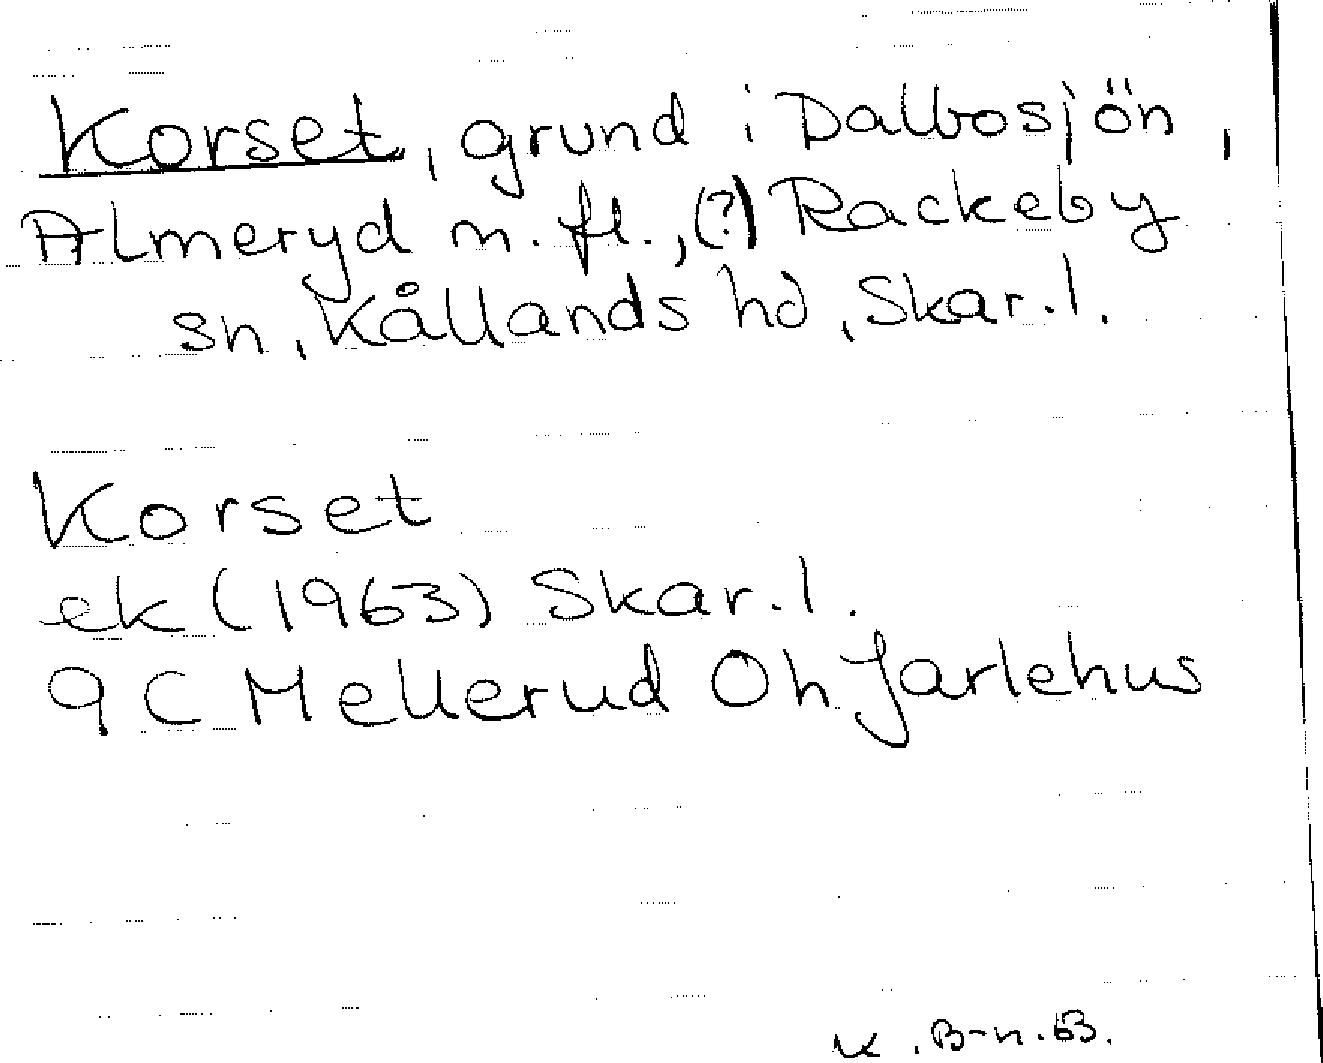 Korset, grund i Dalbosjön,
Almeryd m. fl., (?) Rackeby
sn, Kållands hd, Skar. l.
Korset
ek (1963) Skar. l.
9C Mellerud Oh Jarlehus
K. B-n. 63.